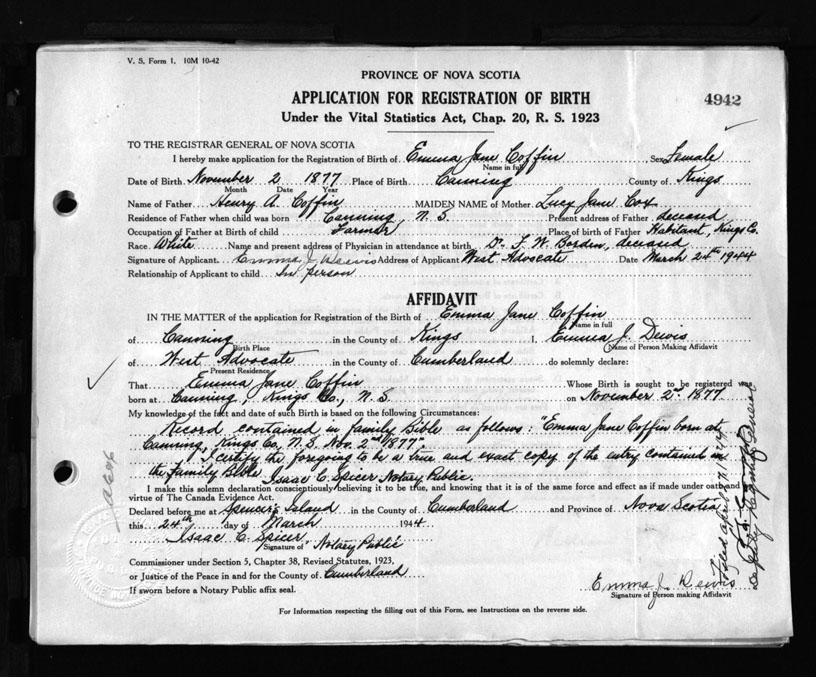 V. S. Form 1. 10M 10-42
PROVINCE OF NOVA SCOTIA
APPLICATION FOR REGISTRATION OF BIRTH
4942
Under the Vital Statistics Act, Chap. 20, R. S. 1923
TO THE REGISTRAR GENERAL OF NOVA SCOTIA
I hereby make application for the Registration of Birth of Emma Jane Coffin Sex Female
Name in full
Date of Birth November 2 1877 Place of Birth Canning County of Kings
Month Date Year
Name of Father Henry A. Coffin MAIDEN NAME of Mother Lucy Jane Cox
Residence of Father when child was born Canning, N. S. Present address of Father deceased
Occupation of Father at Birth of child Farmer Place of birth of Father Habitant, Kings Co.
Race White Name and present address of Physician in attendance at birth Dr. F. W. Borden, deceased
Signature of Applicant Emma J Dewis Address of Applicant West Advocate Date March 24th 1944
Relationship of Applicant to child In person
AFFIDAVIT
IN THE MATTER of the application for Registration of the Birth of Emma Jane Coffin
Name in full
of Canning in the County of Kings I, Emma J. Dewis
Birth Place Name of Person Making Affidavit
of West Advocate in the County of Cumberland do solemnly declare:
Present Residence
That Emma Jane Coffin Whose Birth is sought to be registered was
born at Canning, Kings Co., N. S. on November 2nd 1877
My knowledge of the fact and date of such Birth is based on the following Circumstances:
Record contained in family Bible as follows: "Emma Jane Coffin born at
Canning, Kings Co, N. S. Nov. 2nd 1877".
I certify the foregoing to be a true and exact copy of the entry contained in
the family Bible Isaac C. Spicer Notary Public.
I make this solemn declaration conscientiously believing it to be true, and knowing that it is of the same force and effect as if made under oath and
virtue of The Canada Evidence Act.
Declared before me at Spencer's Island in the County of Cumberland and Province of Nova Scotia
this 24th day of March 1944
Isaac C. Spicer
Signature of "Notary Public"
Commissioner under Section 5, Chapter 38, Revised Statutes, 1923,
or Justice of the Peace in and for the County of Cumberland
If sworn before a Notary Public affix seal.
Emma J. Dewis
Signature of Person making Affidavit
For Information respecting the filling out of this Form, see Instructions on the reverse side.
Filed April
Deputy Registrar General